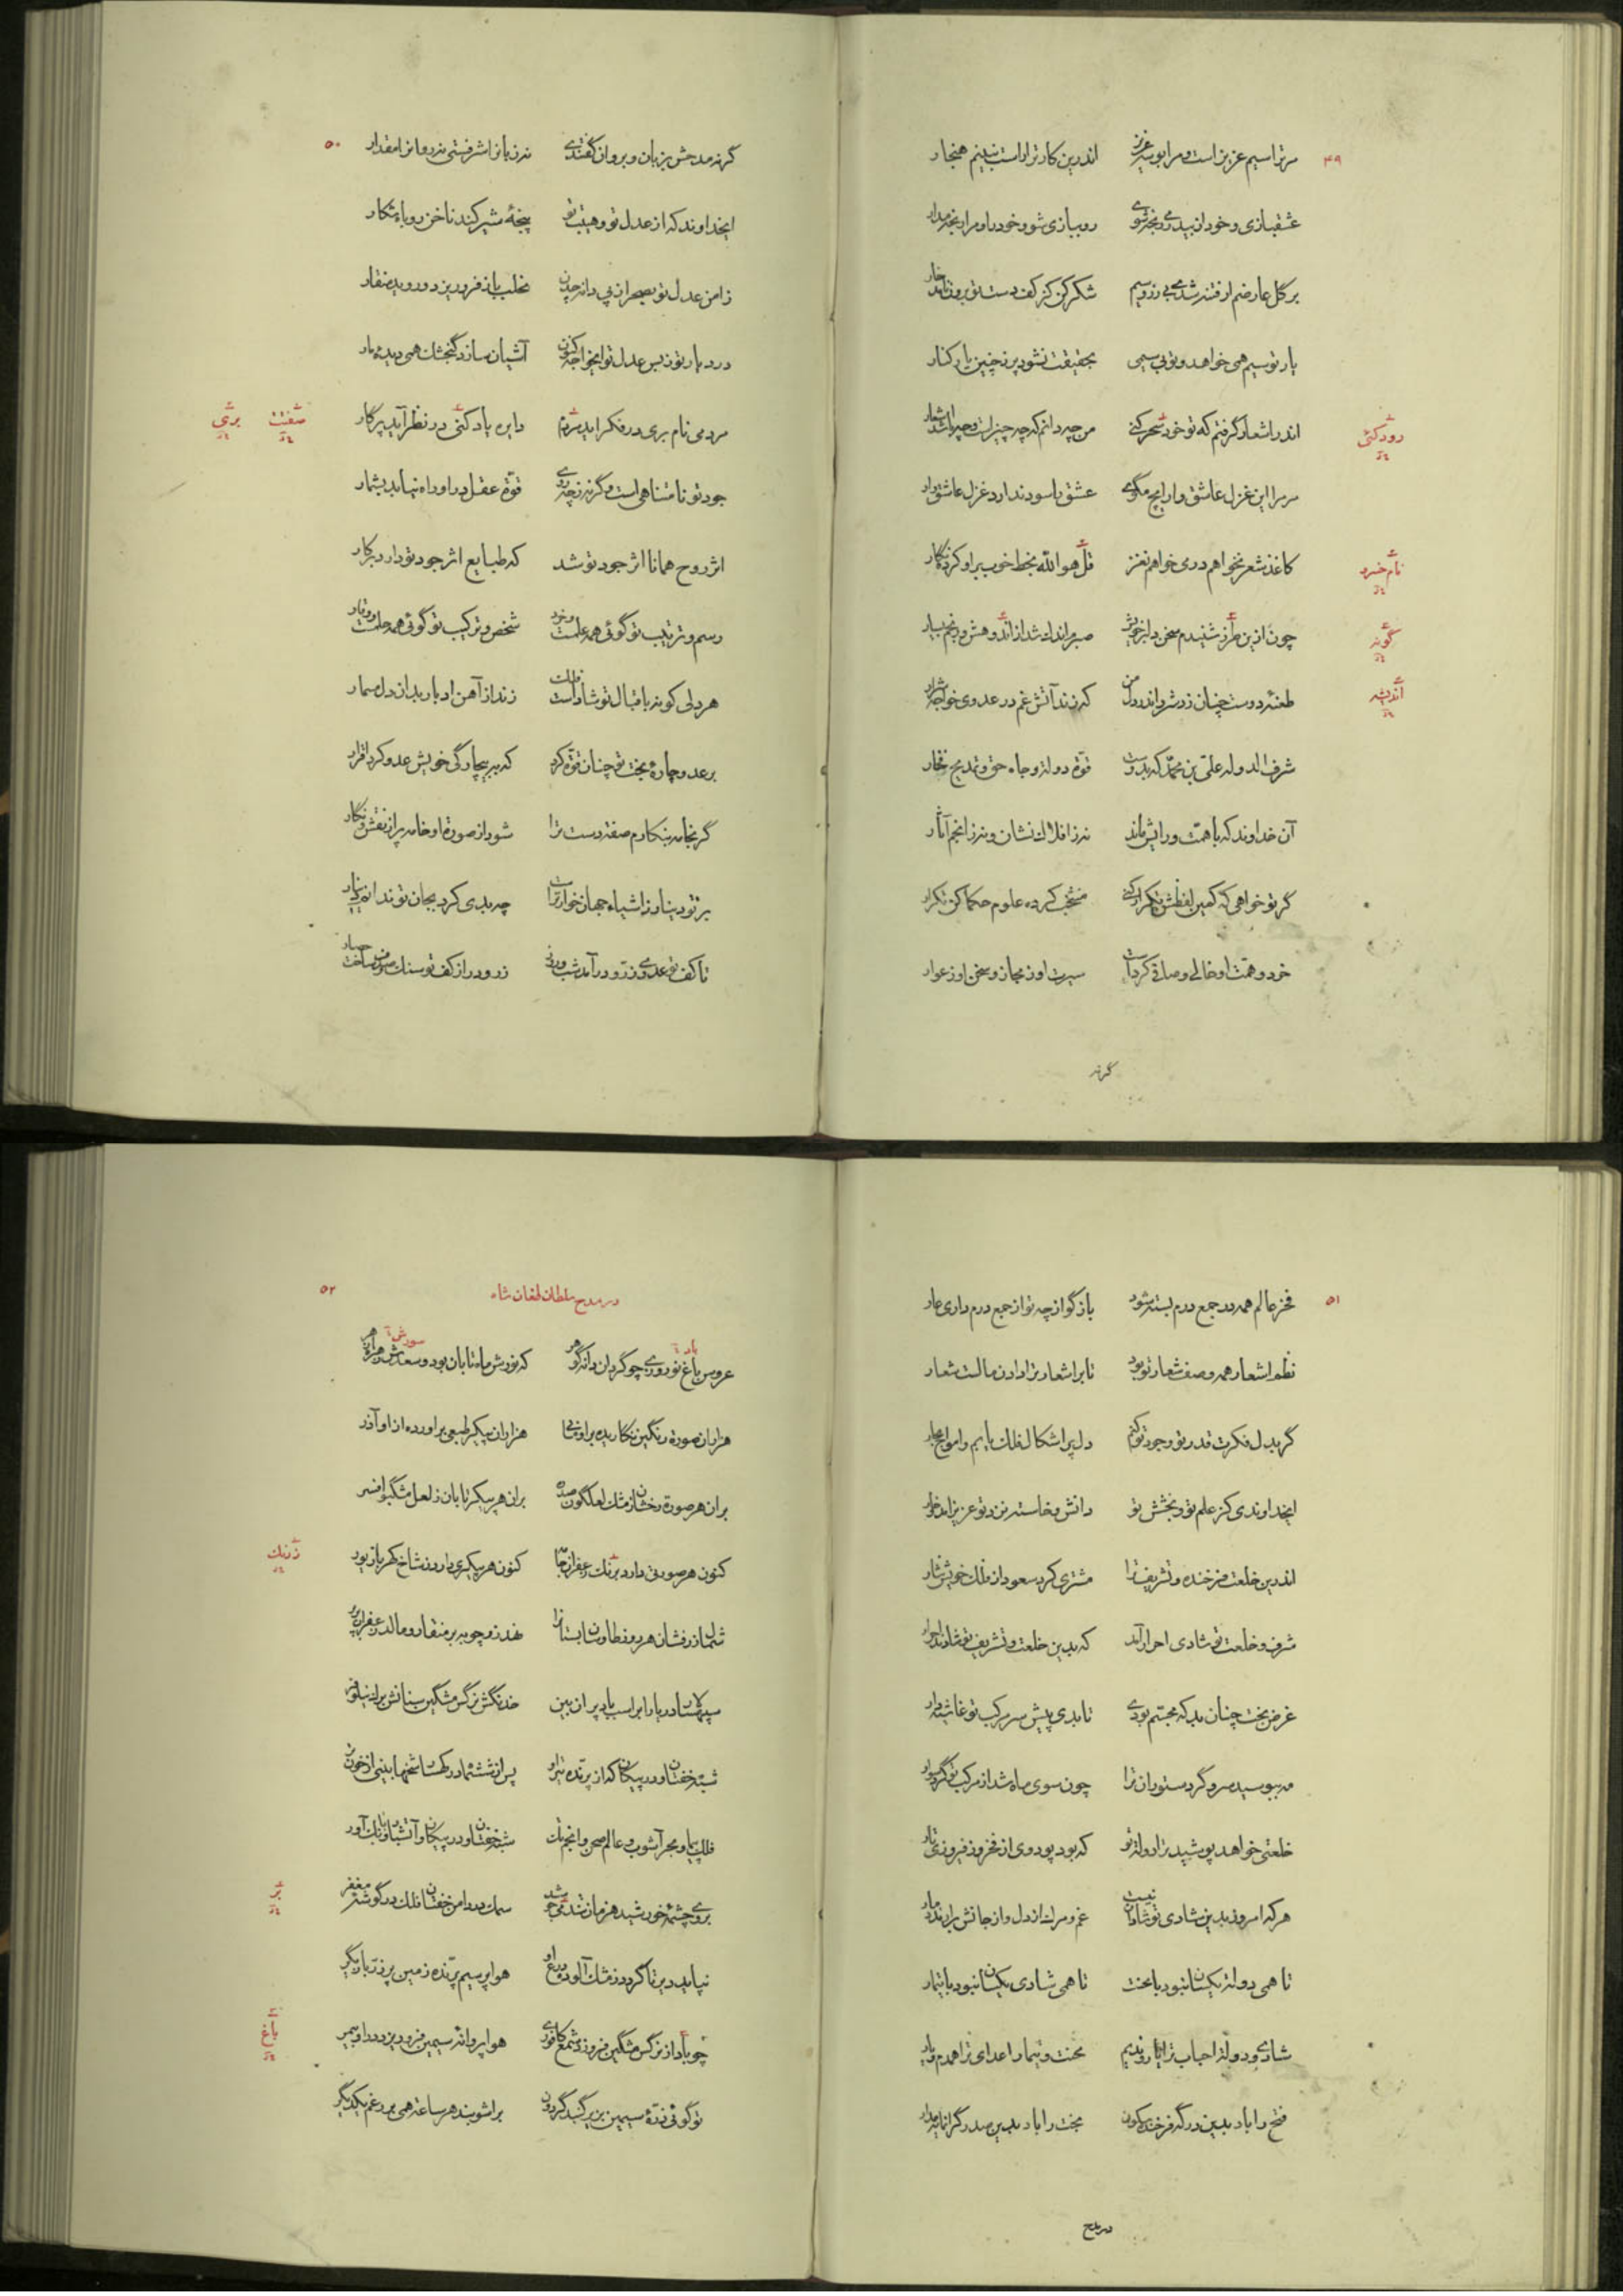 ۴۹
مر ترا سیم عزیز است و مرا بوسه عزیز اندرین کار ترا راست نبینم هنجار
عشقبازی و خود از بیدرمی رنجه شوی رو ببازی شو و خود را و مرا رنجه مدار
بر گل عارضم ار فتنه شدی بی زر و سیم شکر کن کز کف دست تو برون ناید خار
یار تو سیم همی خواهد و تو بی سیمی بحقیقت نشود بر تو چنین یار کنار
اندر اشعار گرفتم که تو خود سحر کنی من چه دانم که چه چیز است و چه باشد اشعار
رودکئی
مر مرا این غزل عاشق وار ایچ مگوی عشق با سود ندارد غزل عاشق وار
کاغذ شعر نخواهم درمی خواهم نغز قل هو الله بخط خوب بر او کرده نگار
نام خسرو
چون ازین طرز شنیدم سخن دلبر خویش صبرم اندک شد از اندوهش و رنجم بسیار
گونه
طعنهٔ دوست چنان زد شرر اندر دل من که زند آتش غم در عدوی خواجه شرار
اندیشه
شرف الدوله علی بن محمد که بدوست قوة دولة و جاه حق و تمدیح فخار
آن خداوند که با همت و رایش ماند نه ز افلاک نشان و نه ز انجم آثار
گر تو خواهی که کمین لفظش تکرار کنی منتخب کرده علوم حکما کن تکرار
خرد و همت او خالی و صافی کرده است سیرت او ز مجاز و سخن او ز عوار
گرنه
۵۰
گرنه مدحش بزبان و بروان گفتندی نه زبانرا شرفستی نه روانرا مقدار
ایخداوند که از عدل تو و هیبت تو پنجهٔ شیر کند ناخن روباه شکار
ز امن عدل تو بصحرا ز پی دانه چدن مخلب باز فرو ریزد و روید منقار
در دیار تو ز بس عدل تو ایخواجه کنون آشیان سازد گنجشک همی دیدهٔ مار
مردمی نام بری در فکر آید مردم دایره یاد کنی در نظر آید پرگار
صفتت برئی
جود تو نامتناهی است و گرنه ز چه روی قوة عقل در او راه نیابد بشمار
اثر روح همانا اثر جود تو شد که طبایع اثر جود تو دارد بر کار
رسم و ترتیب تو گوئی همه علمست و خرد شخص و ترکیب تو گوئی همه حلمست و وقار
هر دلی کو نه باقبال تو شاد است فلک زند از آهن ادبار بدان دل مسمار
بر عدو چارهٔ بخت تو چنان قوة کرد که ببیچارگی خویش عدو کرد اقرار
گر بخامه بنگارم صفة دست ترا شود از صورة او خامه پر از نقش و نگار
بر تو دینار ز اشیاء جهان خوارتر است چه بدی کرد بجان تو ندانم دینار
تا کف تو عدوی زر و درآمد شب و روز زر و در از کف تو سنگ و صدف ساخت حصار
۵۱
فخر عالم همه در جمع درم بسته شود بازگو از چه تو از جمع درم داری عار
نظم اشعار همه وصف شعار تو بود تا بر اشعار ترا دادن مالست شعار
گر بدل فکرت قدر تو و جود تو کنم دل پر اشکال فلک یابم و امواج بحار
ایخداوندی کز علم تو و بخشش تو دانش و خاسته نزد تو عزیز اند و خوار
اندرین خلعت فرخنده و تشریف ترا مشتری کرد سعود از فلک خویش نثار
شرف و خلعت تو شادی احرار آمد که بدین خلعت و تشریف تو شادند احرار
غرض بخت چنان بد که مجسم بودی تا بدی پیش سر مرکب تو غاشیه دار
مه ببوسید سر و گرد ستوران ترا چون سوی ماه شد از مرکب تو گرد سوار
خلعتی خواهد پوشید ترا دولة تو که بود پود وی از فخر و ز فیروزی تار
هر که امروز بدین شادی تو شادان نیست غم و مرگ از دل و از جانش برآرند دمار
تا همی دولة یکسان نبود با محنت تا همی شادی یکسان نبود با تیمار
شادی و دولة احباب ترا یار و ندیم محنت و تیمار اعدای ترا همدم و یار
فتح را باد بدین درگه فرخنده سکون بخت را باد بدین صدر گرانمایه مدار
در مدح
۵۲
در مدح سلطان طغان شاه
عروس باغ نوروزی چو گردان دانه گوهر که نورش ماه تابان بود و سعدش زهرهٔ ازهر
باد سورش
هزاران صورة رنگین نگاریده بر او هزاران پیکر طبعی برآورده از او آذر
بران هر صورة رخشان ز مشک لعلگون صدره بران هر پیکر تابان ز لعل مشگبو افسر
کنون هر صورتی دارد برنگ زعفران کنون هر پیکری دارد ز شاخ کهربا
زرنگ
شمال زرفشان هر روز طاوسان بستانرا نهد زر چوبه بر منقار و مالد زعفران بر پر
خدنگش نرگس مشگین سنانش برگ نیلوفر
فلک پیما و مجر آشوب و عالم صحن و انجم تک
بر وی چشمهٔ خورشید هر زمان سمک در دامن خفتان فلک در گوشهٔ مغفر
بر
هوا پر سیم پرنده زمین پر زر
چو باد از نرگس مشگین فروزد شمع کافوری هوا پروانهٔ سیمین فرو ریزد در او
باغ
تو گوئی ذرهٔ سیمین بزیر گنبد گردون برآشوبند هر ساعة همی بر رغم یکدیگر